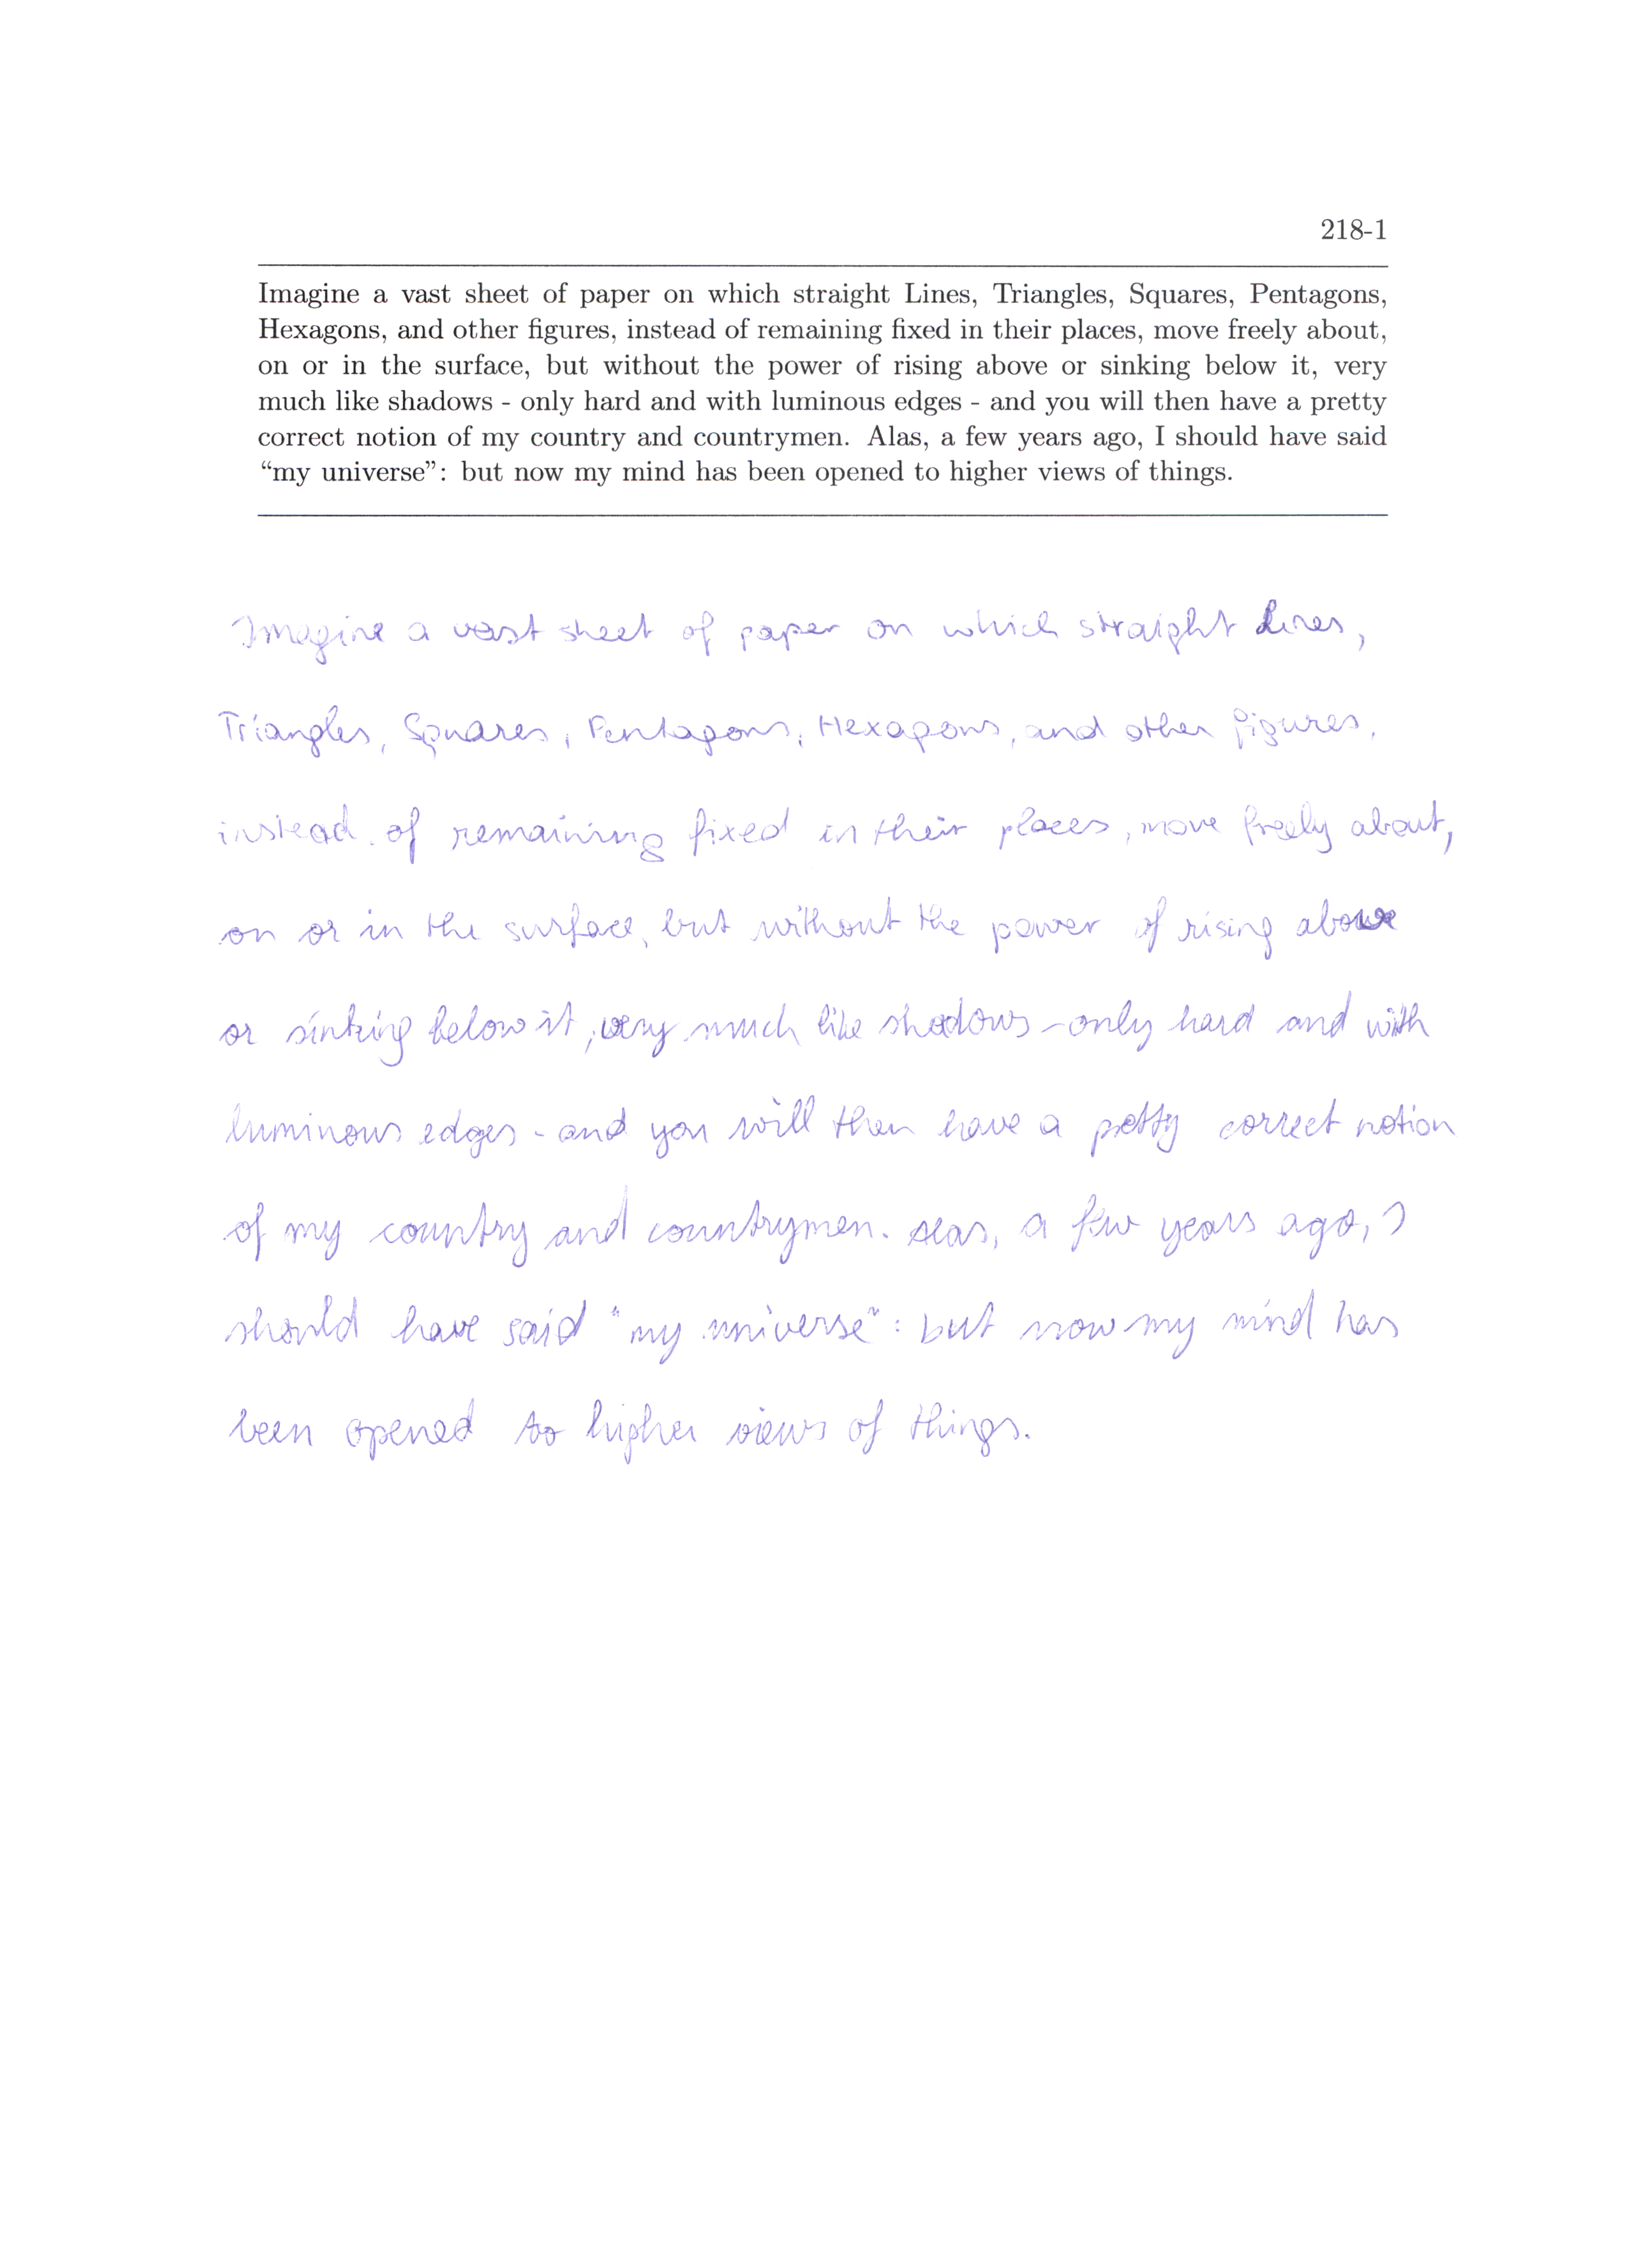 218-1
Imagine a vast sheet of paper on which straight Lines, Triangles, Squares, Pentagons,
Hexagons, and other figures, instead of remaining fixed in their places, move freely about,
on or in the surface, but without the power of rising above or sinking below it, very
much like shadows - only hard and with luminous edges - and you will then have a pretty
correct notion of my country and countrymen. Alas, a few years ago, I should have said
“my universe”: but now my mind has been opened to higher views of things.
Imagine a vast sheet of paper on which straight Lines,
Triangles, Squares, Pentagons, Hexagons, and other figures,
instead of remaining fixed in their places, move freely about,
on or in the surface, but without the power of rising above
or sinking below it, very much like shadows - only hard and with
luminous edges - and you will then have a pretty correct notion
of my country and countrymen. Alas, a few years ago, I
should have said "my universe": but now my mind has
been opened to higher views of things.